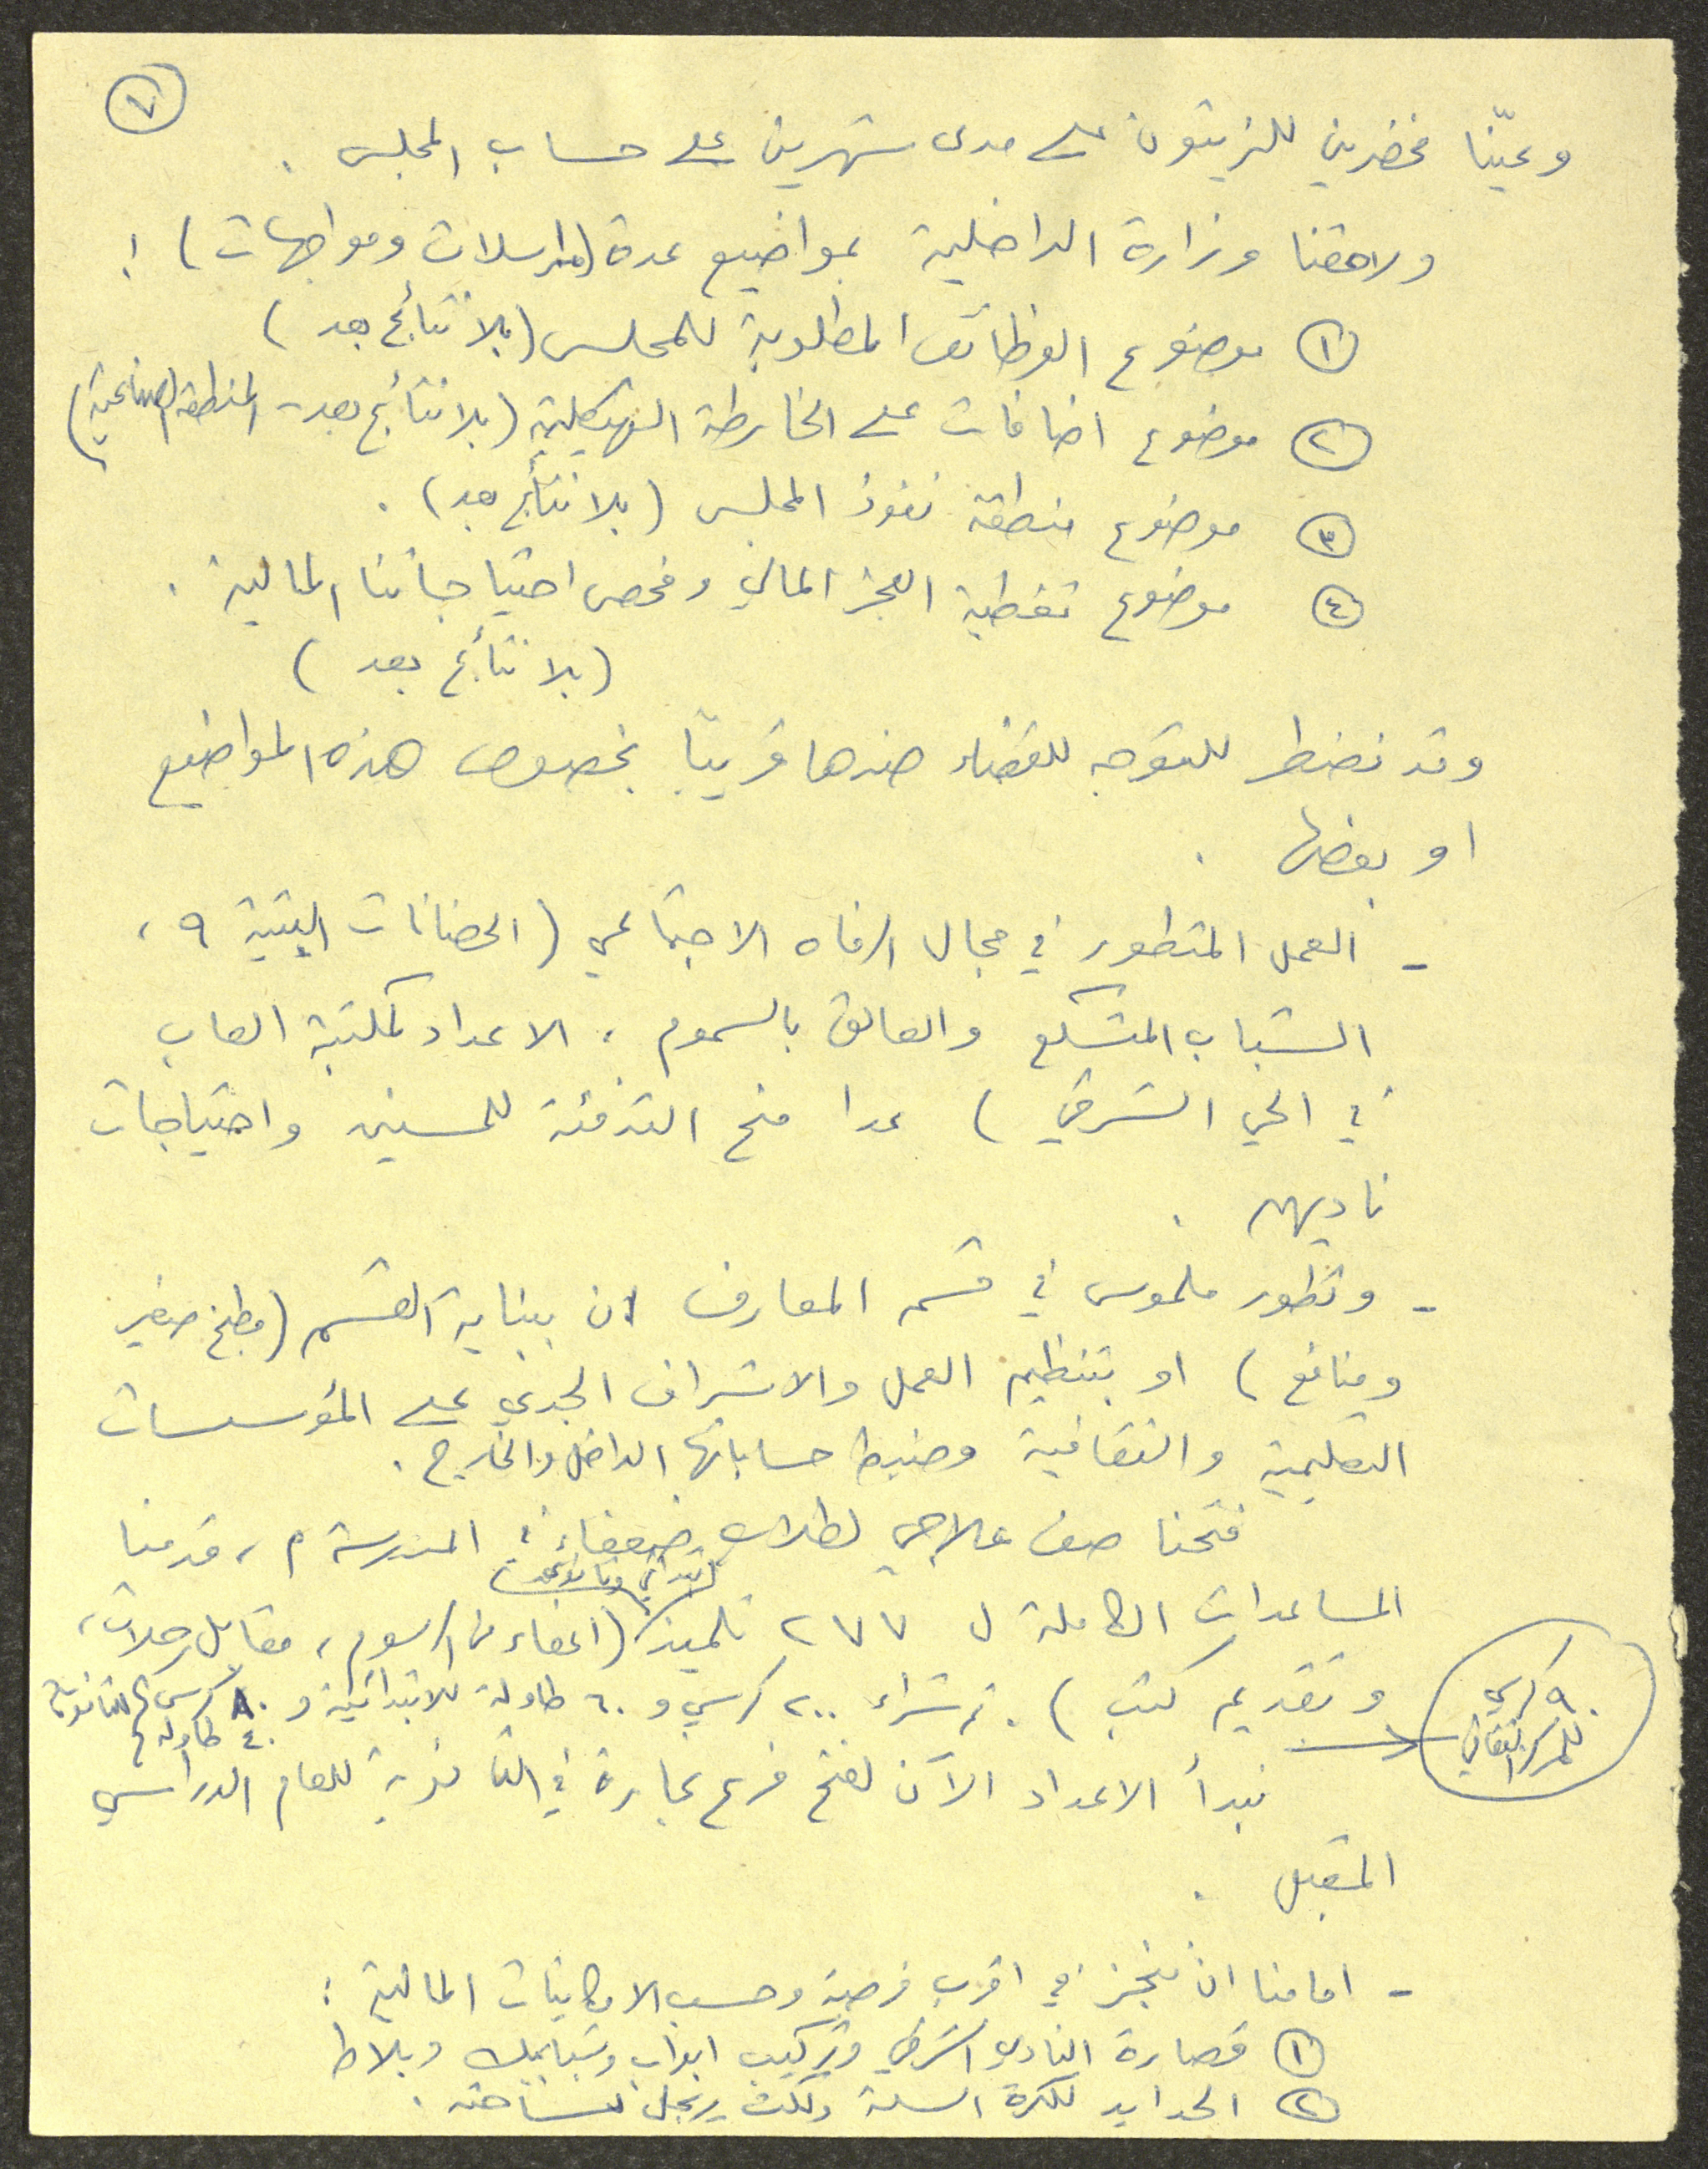 ٧
وعيّنا مخضرين للزيتون على مدى شهرين على حساب المجلس .
ولاحقنا وزارة الداخلية بمواضيع عدة (مراسلات ومواجهات) :
١ موضوع الوظائف المطلوبة للمجلس (بلا نتائج بعد)
٢ موضوع اضافات على الخارطة الهيكلية (بلا نتائج بعد - المنطقة الصناعية)
٣ موضوع منطقة نفوذ المجلس (بلا نتائج بعد) .
٤ موضوع تغطية العجز المالي وفحص احتياجاتنا المالية .
(بلا نتائج بعد)
وقد نضطر للتوجه للقضاء ضدها قريبًا بخصوص هذه المواضيع
او بعضها .
- العمل المتطور في مجال الرفاه الاجتماعي (الحضانات البيتية ٩ ،
الشباب المتسكع والعالق بالسموم ، الاعداد لمكتبة العاب
في الحي الشرقي) عدا منح التدفئة للمسنين واحتياجات
ناديهم .
- وتطور ملموس في قسم المعارف ان ببناية القسم (مطبخ صغير
ومنافع) او بتنظيم العمل والاشراف الجدي على المؤسسات
التعليمية والثقافية وضبط حساباتها الداخل والخارج .
فتحنا صف علاجي لطلاب ضعفاء ، المدرسة م ، قدمنا
المساعدات الكاملة ل ٢٧٧ تلميذ (اعفاء من الرسوم ، مقابل رحلات ،
ابتدائي وثانوي
وتقديم كتب) . تم شراء ٢٠٠ كرسي و ٦٠ طاولة للابتدائية و ٨٠ كرسي للثانوية
٤٠ طاولة
٩٠ كرسي
للمركز الثقافي
نبدأ الاعداد الآن لفتح فرع نجارة في الثانوية للعام الدراسي
المقبل .
- امامنا ان ننجز في اقرب فرصة وحسب الامكانيات المالية :
١ قصارة النادي الشرقي وتركيب ابواب وشبابيك وبلاط
٢ الحدايد لكرة السلة